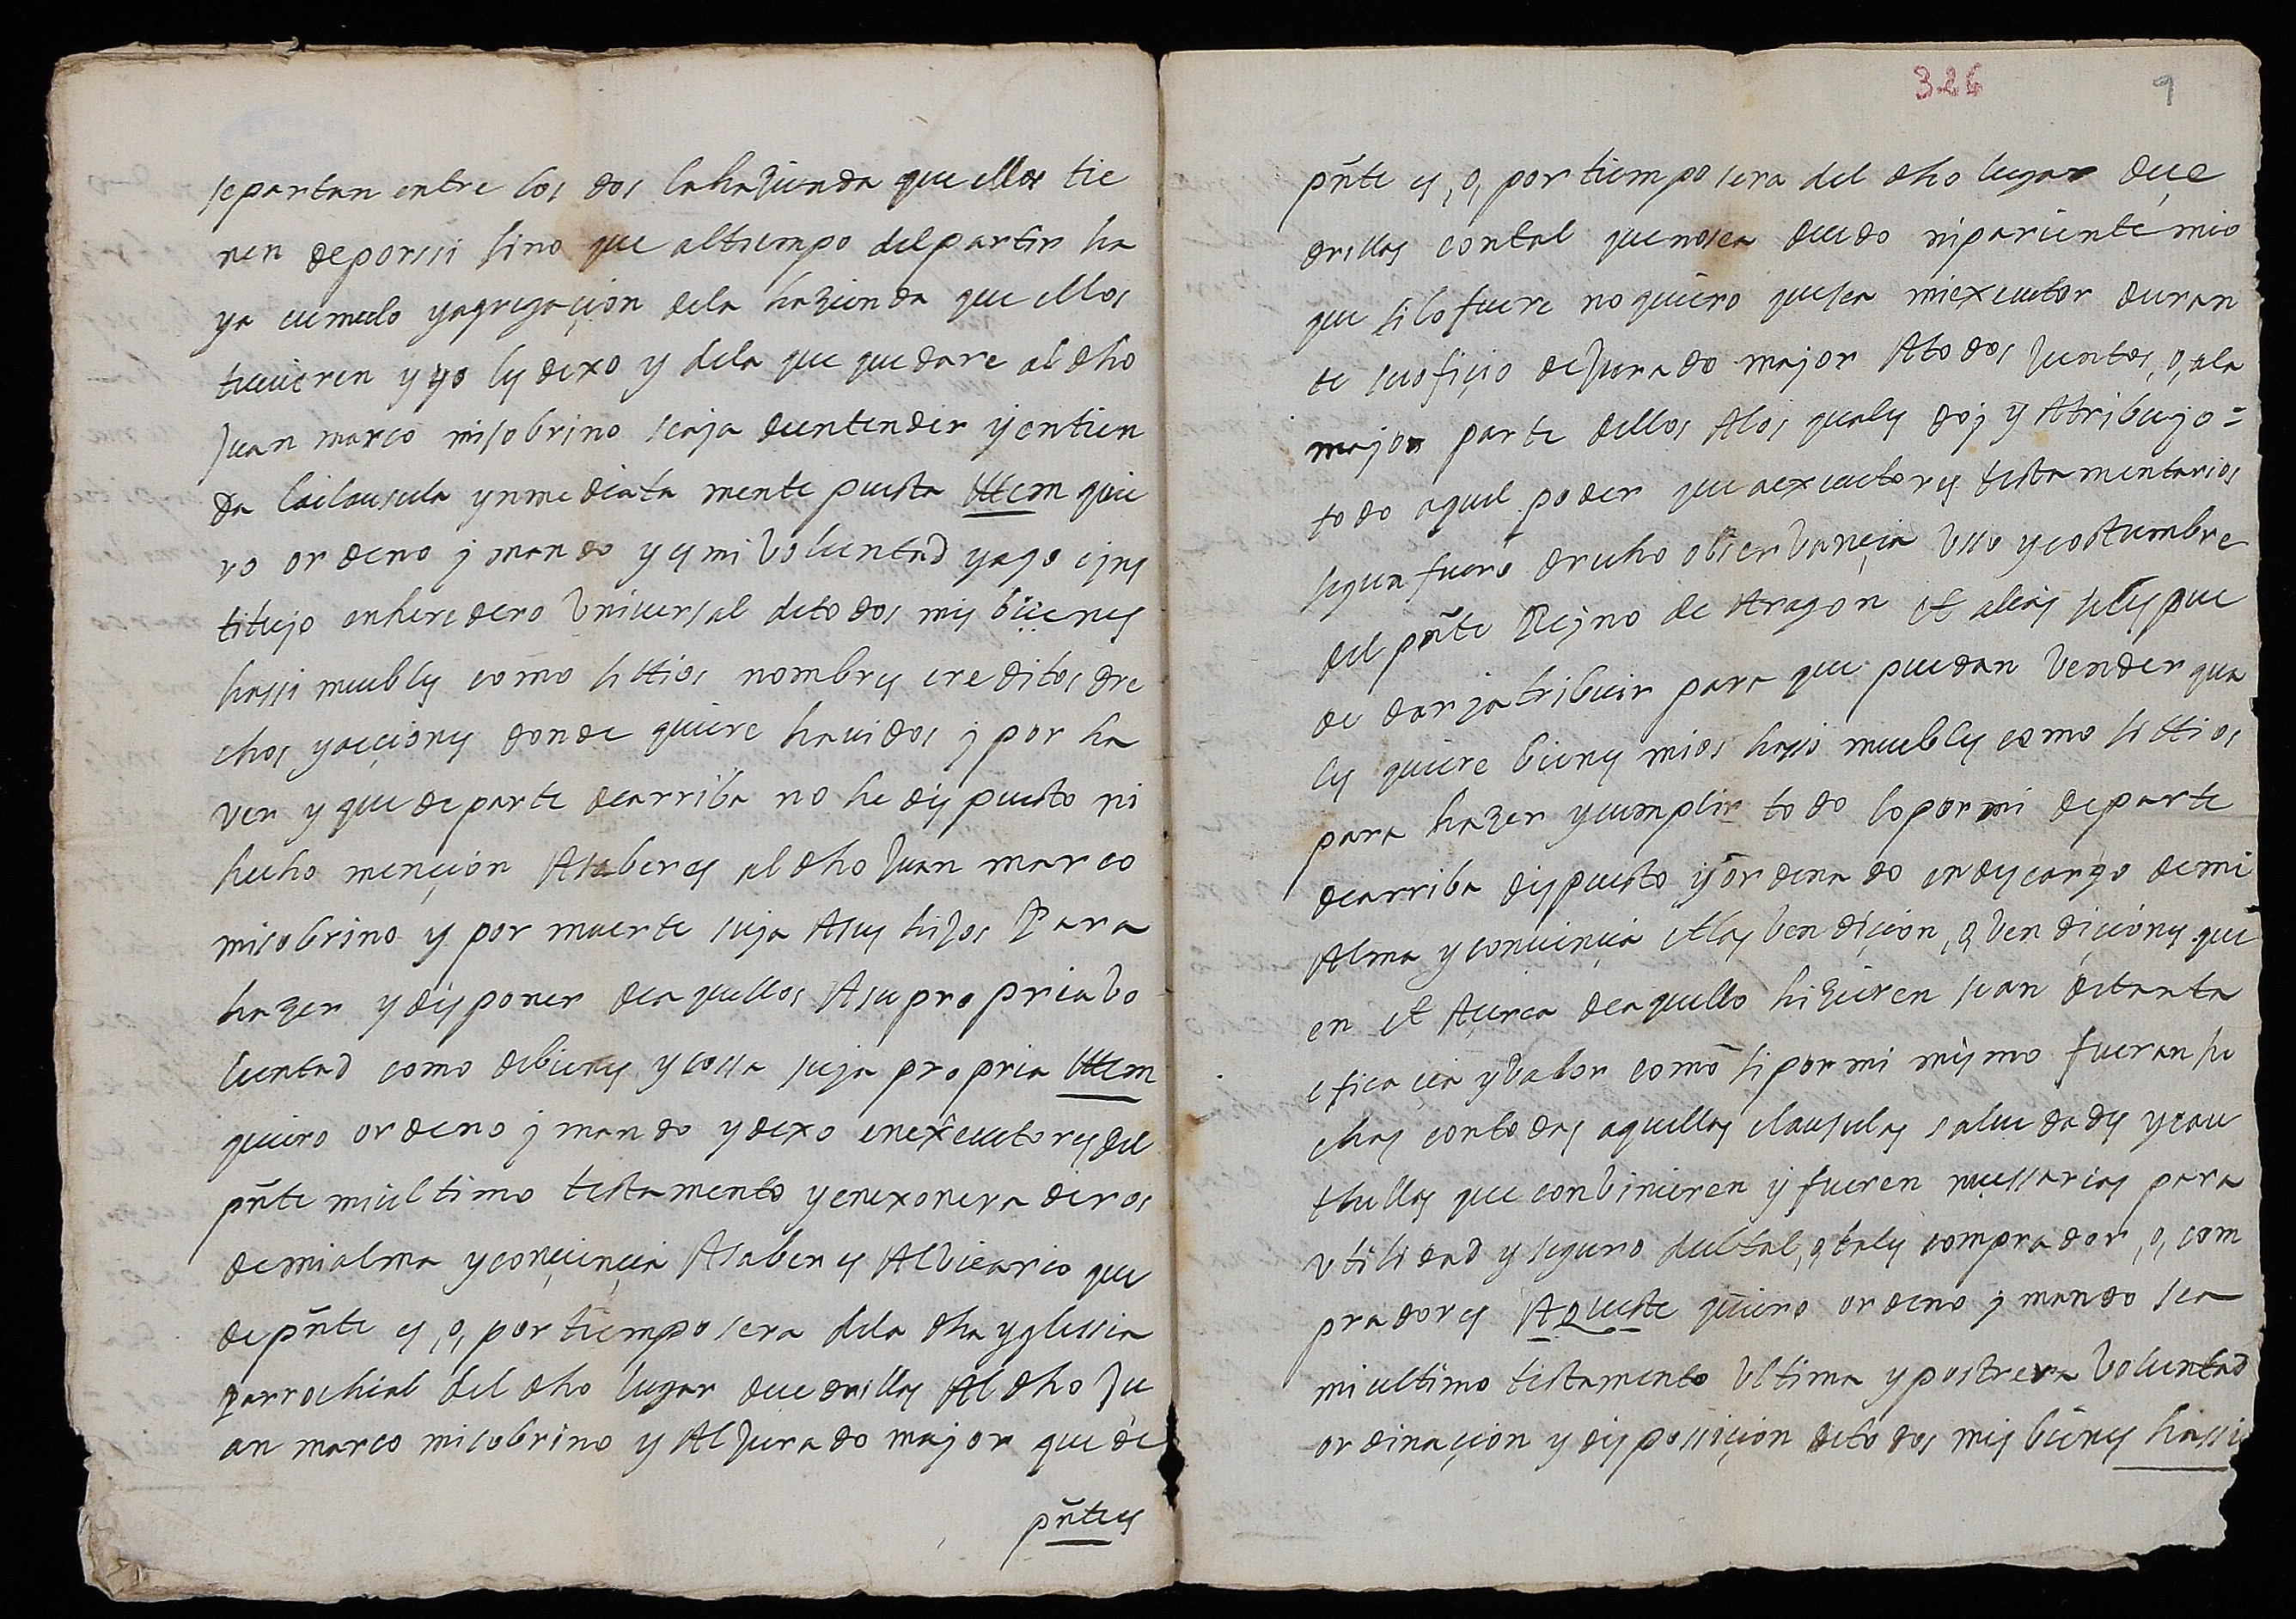 separtan entre los dos lahazienda que ellos tie
nen deporssi sino que altiempo delpartir ha
ya cumulo yagregaçion dela hazienda que ellos
tuuieren y yo les dexo y dela que quedare al dho
Juan marco misobrino seaja dentender yentien
da laclausula ynmediata mente puesta Ittem quie
ro ordeno j mando y es mi Voluntad yago e jns
titujo enheredero Vniuersal detodos mis bienes
hassi muebles como sittios nombres creditos dre
chos yacciones donde quiere hauidos j por ha
ver y que de parte dearriba no he dispuesto ni
hecho mençion Asaber es al dho Juan marco
misobrino y por muerte suja Asus hijos Para
hazer ydisponer deaquellos Asupropria Vo
luntad como debienes ycossa suja propria Ittem
quiero ordeno j mando ydexo enexecutores del
pñte miultimo testamento yenexoneradores
demialma yconçiençia Asaber es Al Vicario que
depñte es, o, portiempo sera dela dha yglessia
parrochial del dho lugar de Ruedrillas Al dho Ju
an marco misobrino y Al Jurado major que de
pñte es
326
9
pñte es, o, por tiempo sera del dho lugar de Rue
drillas contal quenosea deudo nipariente mio
que silo fuere no quiero quesea miexecutor duran
te suofiçio deJurado major Atodos Juntos, o, ala
major parte dellos Alos quales doj y Atribujo=
todo aquel poder que aexecutores testamentarios
segun fuero drecho obserVançia Vsso ycostumbre
del pñte Rejno de Aragon et alias seles pue
de dar jatribuir para que puedan Vender qua
les quiere bienes mios hassi muebles como sittios
para hazer ycumplir todo lopormi departe
dearriba dispuesto yordenado endescargo demi
Alma yconciençia Alas Vendiçion, o, Vendiçiones que
en et Açerca deaquello hizieren sean detanta
eficacia yValor como sipormi mismo fueran he
chas contodas aquellas clausulas salue dades ycau
thellas que conVinieren y fueren neçessarias para
Vtilidad y seguro deltal, o, tales comprador, o, com
pradores Aqueste quiero ordeno j mando sea
miultimo testamento Vltima ypostrera Voluntad
ordinaçion ydisposiçion detodos mis bienes hassi